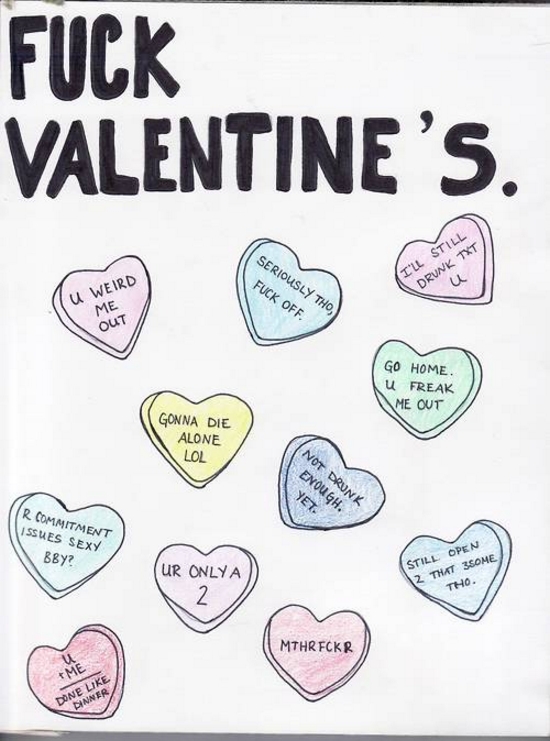 FUCK
VALENTINE'S.
U WEIRD
ME
OUT
SERIOUSLY THO,
FUCK OFF.
I'LL STILL
DRUNK TXT
U
GO HOME.
U FREAK
ME OUT
GONNA DIE
ALONE
LOL
NOT DRUNK
ENOUGH.
YET.
R COMMITMENT
ISSUES SEXY
BBY?
UR ONLY A
2
STILL OPEN
2 THAT 3SOME
THO.
MTHRFCKR
U
+ME
DONE LIKE
DINNER